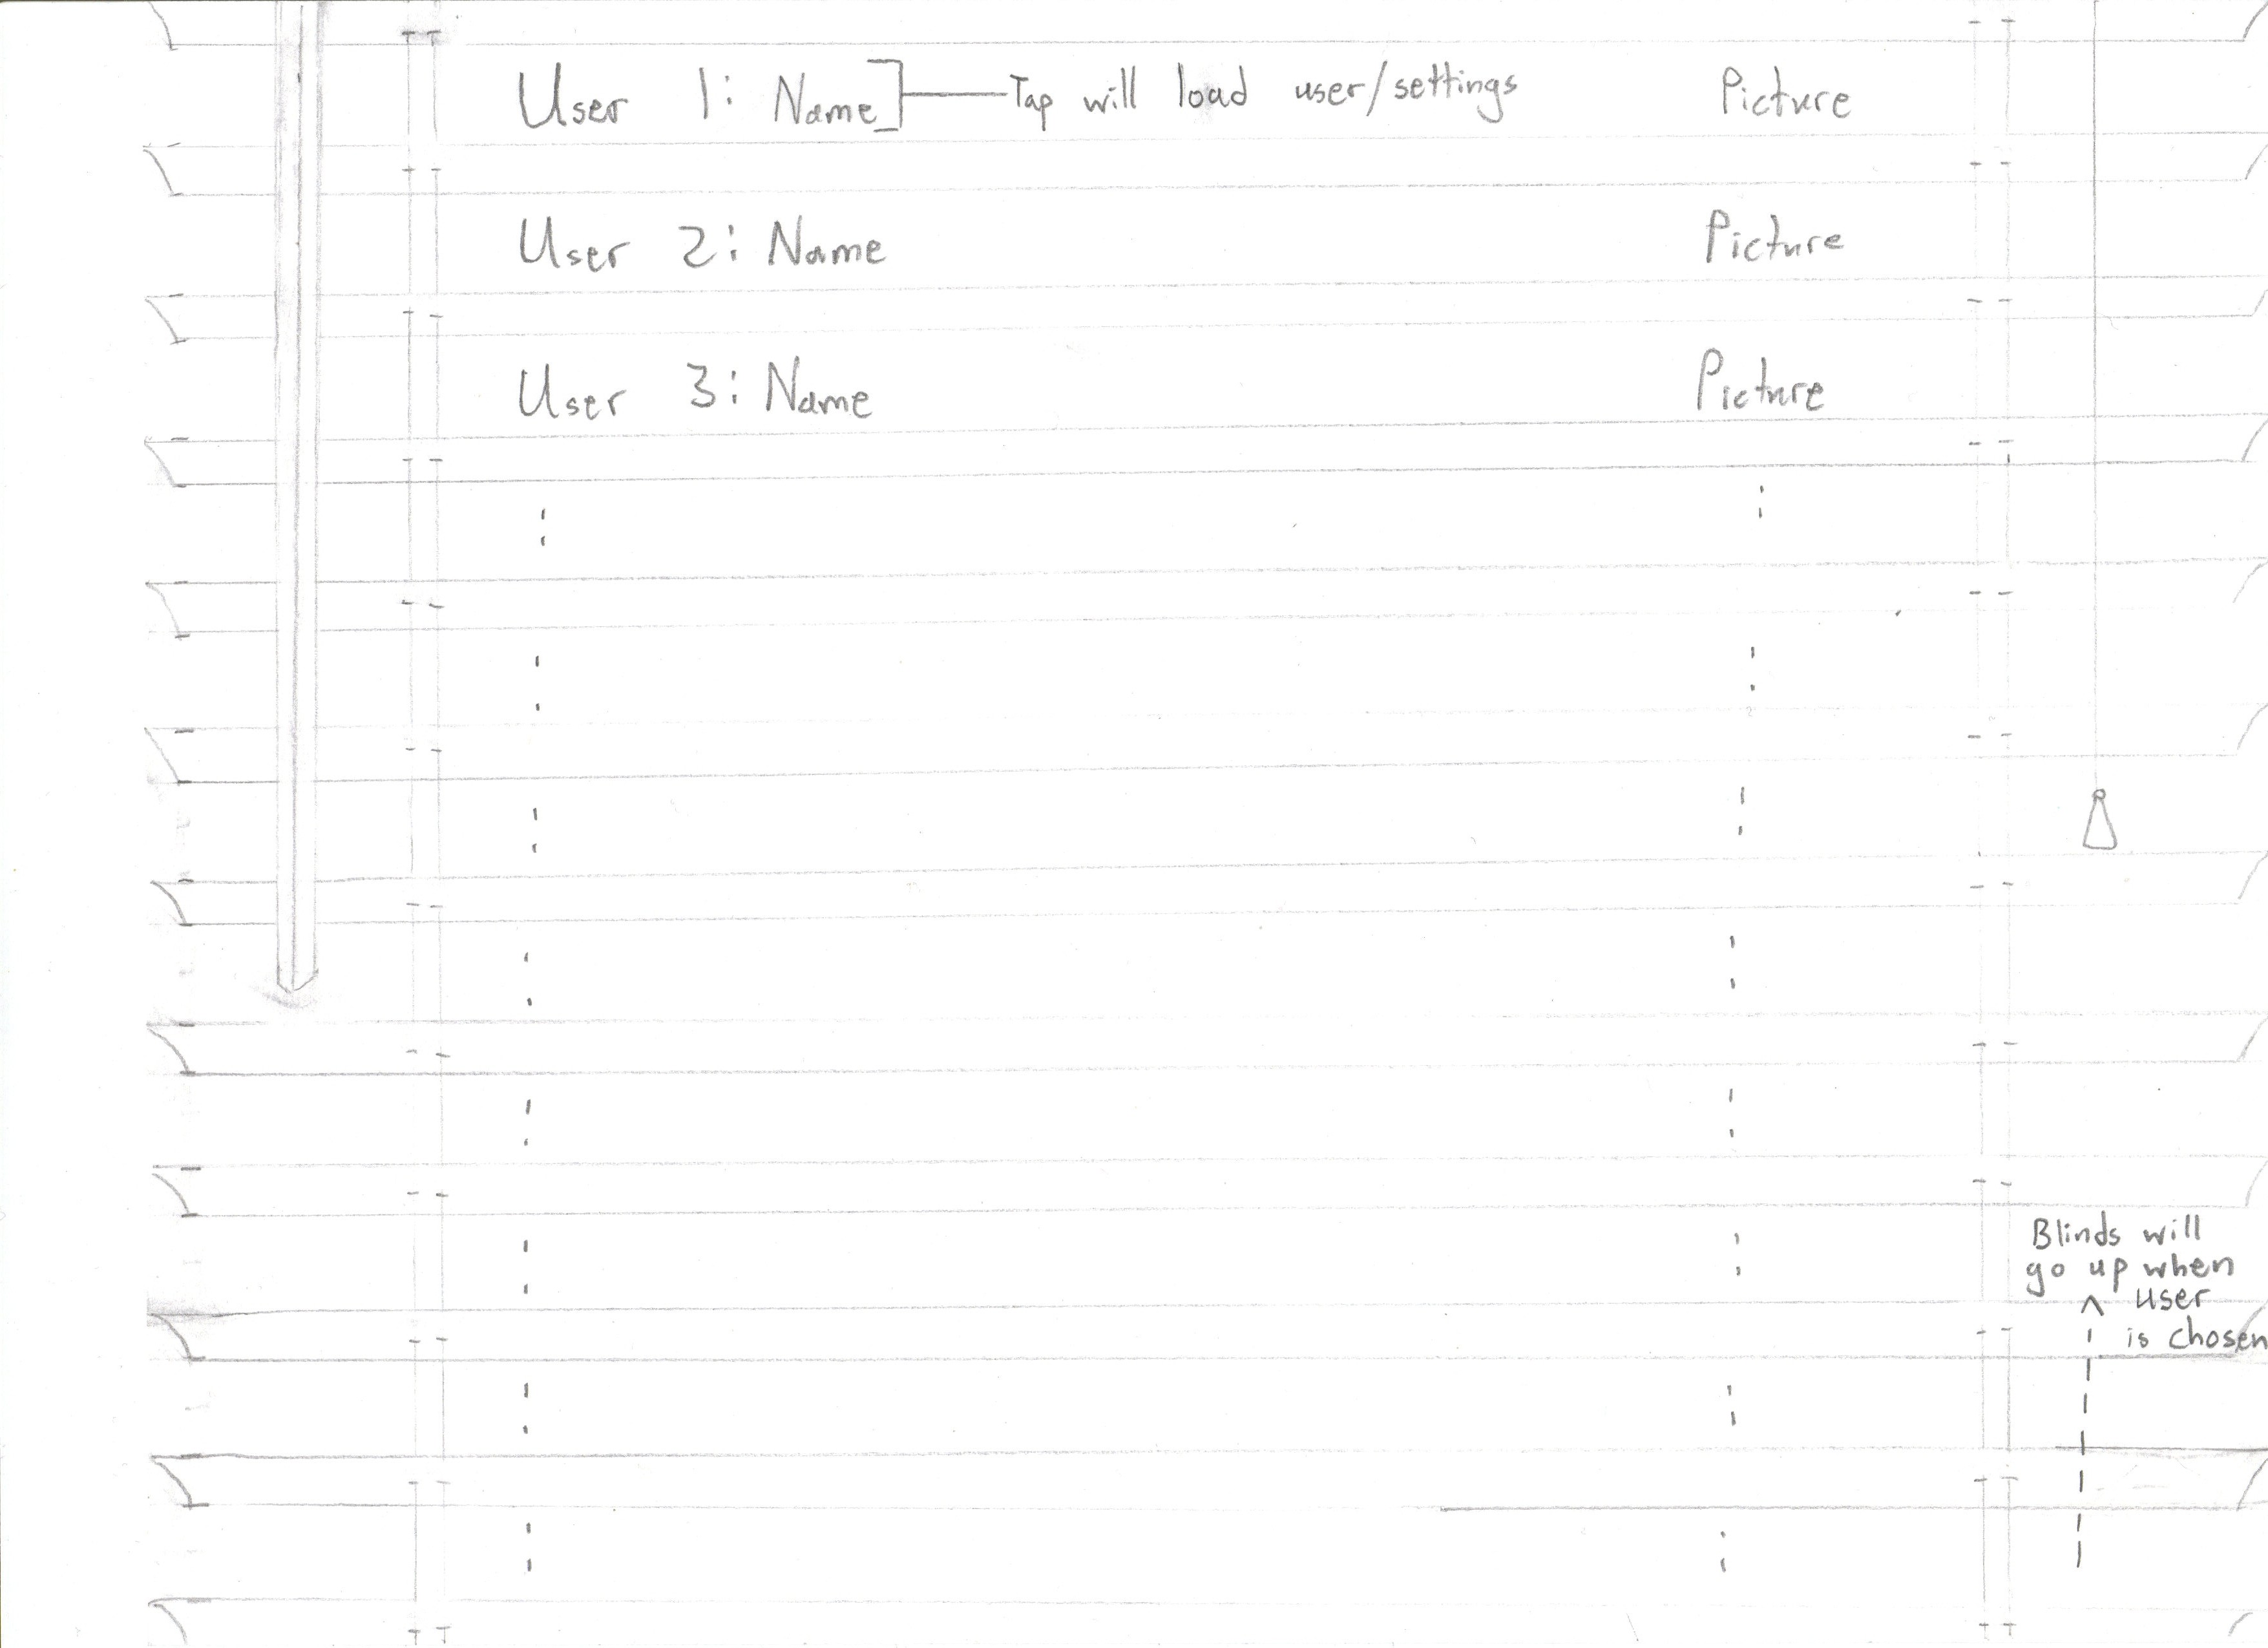 User 1: Name] Tap will load user/settings Picture
User 2: Name Picture
User 3: Name Picture
Blinds will
go up when
user
is chosen